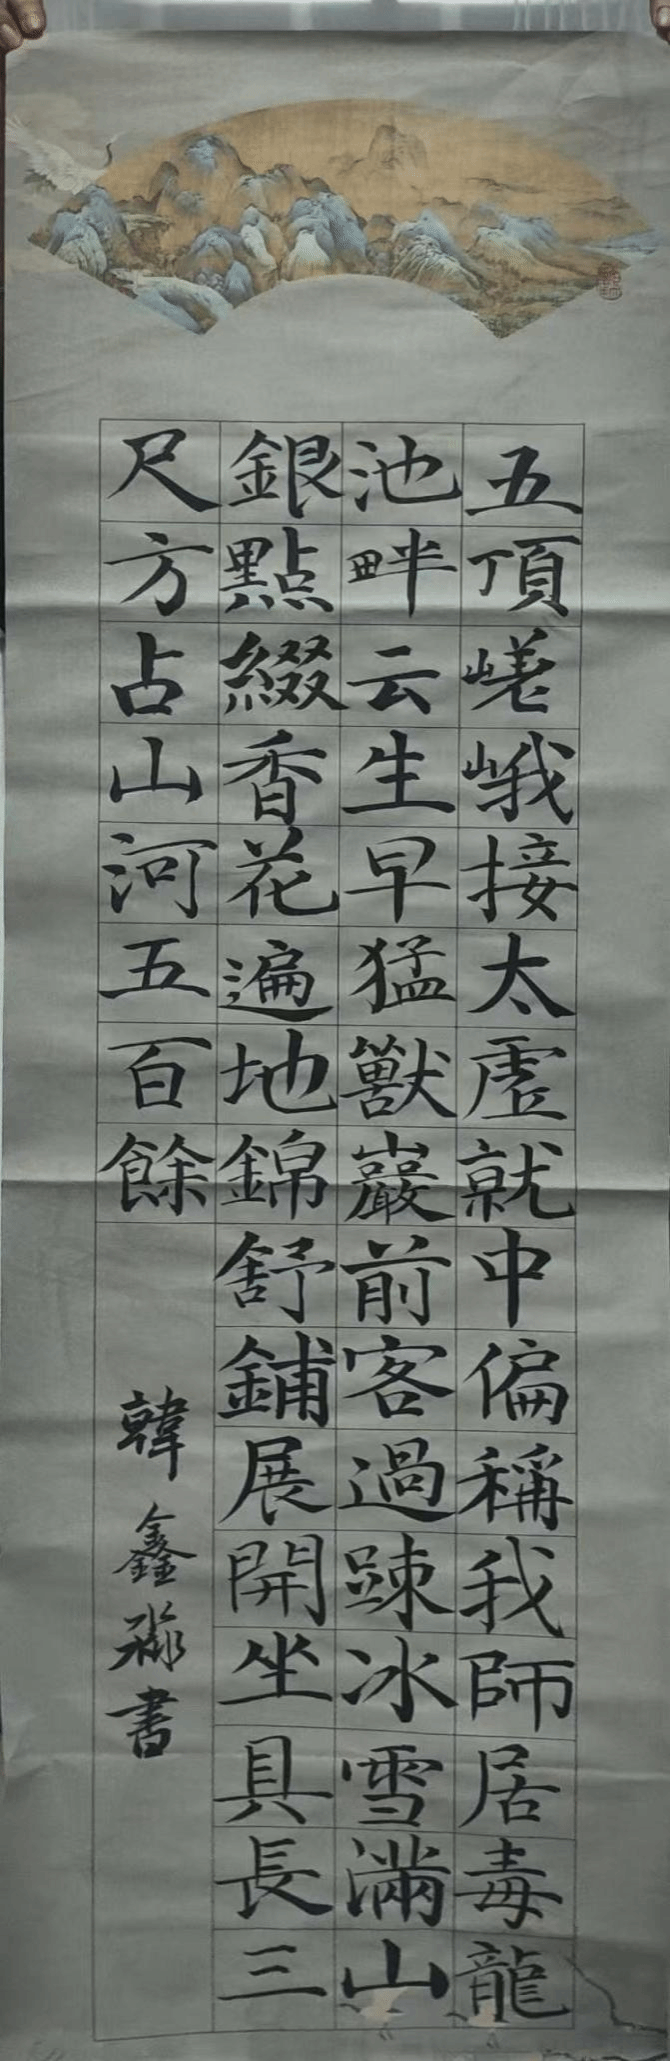 五頂嵯峨接太虛就中偏稱我師居毒龍
池畔云生早猛獸巖前客過踈冰雪滿山
銀點綴香花遍地錦舒鋪展開坐具長三
尺方占山河五百餘
韓鑫淼書